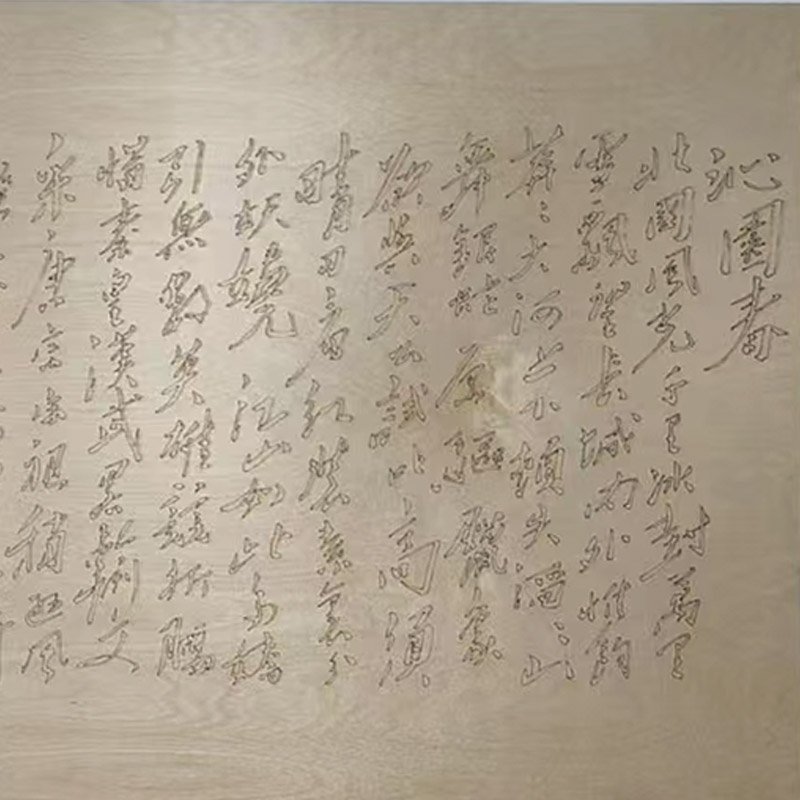 沁園春
北國風光千里冰封萬里
雪飄望長城内外惟餘
莽々大河上下頓失滔々山
舞銀蛇原驅臘象
欲與天公試比高須
晴日看红裝素裹分
外妖嬈江山如此多嬌
引無數英雄競折腰
惜秦皇漢武略輸文
采唐宗宋祖稍遜風